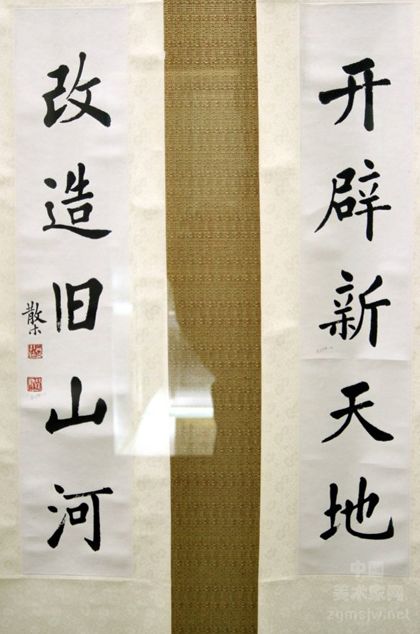 开辟新天地
改造旧山河
散木
中国
美术家网
zgmsjw.net